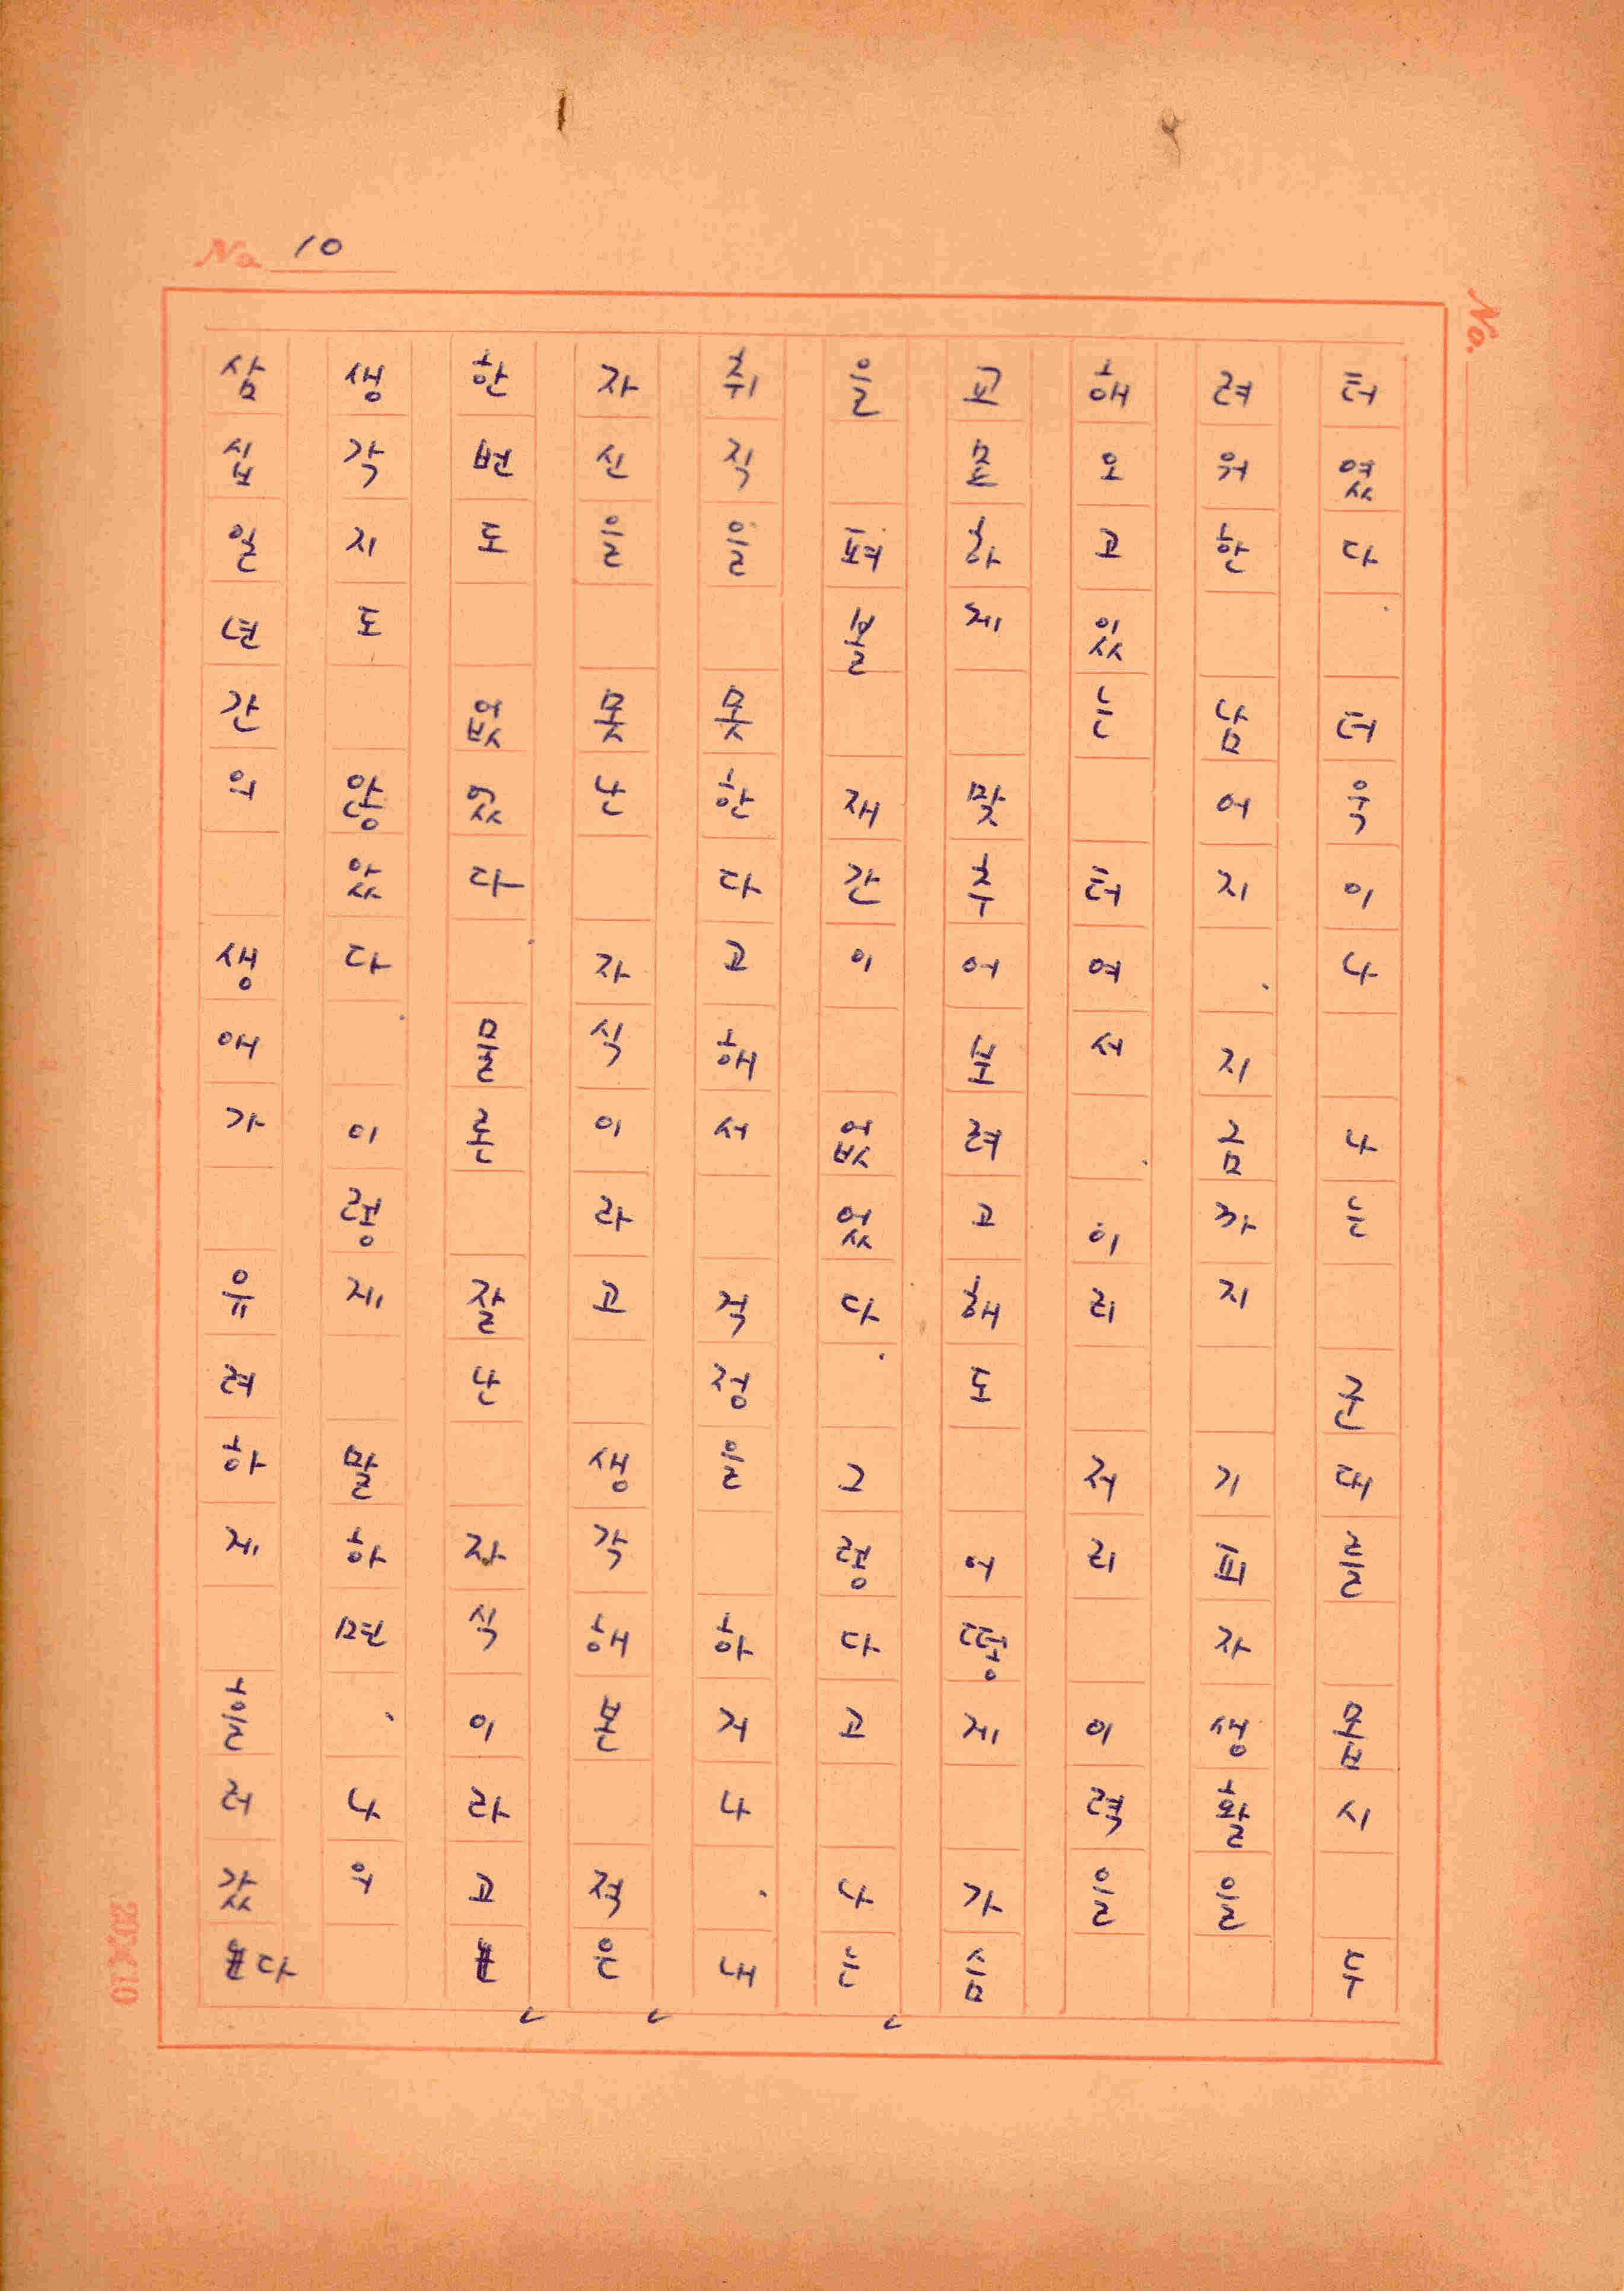 No. 10
No.
터였다. 더욱이나 나는 군대를 몹시 두
려워한 남어지, 지금까지 기피자생활을
해오고 있는 터여서, 이리 저리 이력을
교묘하게 맞추어 보려고해도 어떻게 가슴
을 펴볼 재간이 없었다. 그렇다고 나는
취직을 못한다고해서 걱정을 하거나, 내
자신을 못난 자식이라고 생각해본 적은
한번도 없었다. 물론 잘난 자식이라고
생각지도 않았다. 이렇게 말하면, 나의
삼십일년간의 생애가 유려하게 흘러갔다
20X10